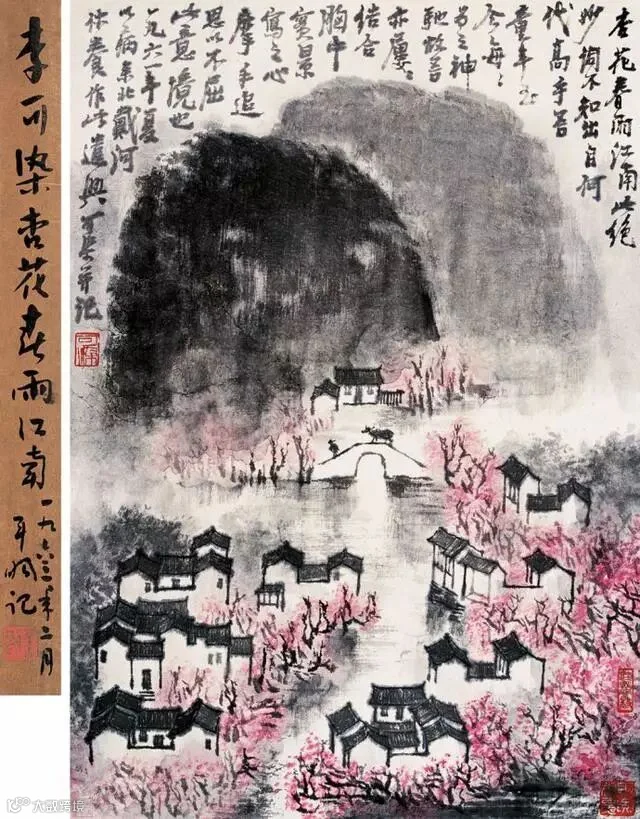 杏花春雨江南此絕
妙詞不知出自何
代高手吾
童年至
今每〻
為之神
馳故吾
亦屢〻
結合
胸中
實景
寫之心
摹手追
思以不屈
此意境也
一九六一年夏
以病来北戴河
休養作此遣興可染并记
李可染杏花春雨江南
一九六三年二月
记
大数跨境